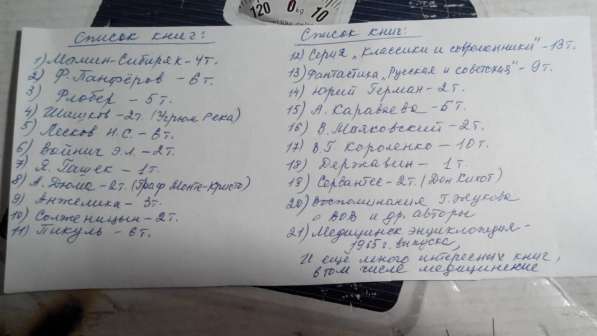 120 0 10
kg
Список книг:
1) Мамин-Сибиряк - 4т.
2) Ф. Панфёров - 6т.
3) Флобер - 5т.
4) Шишков - 2т. (Угрюм Река)
5) Лесков Н.С. - 6т.
6) Войнич Э.Л. - 2т.
7) Я. Гашек - 1т.
8) А. Дюма - 2т. (Граф Монте-Кристо)
9) Анжелика - 3т.
10) Солженицын - 2т.
11) Пикуль - 6т.
Список книг:
12) Серия "Классики и современники" - 13т.
13) Фантастика "Русская и советская" - 9т.
14) Юрий Герман - 2т.
15) А. Караваева - 5т.
16) В. Маяковский - 2т.
17) В.Г Короленко - 10т.
18) Державин - 1т.
19) Сервантес - 2т. (Дон Кихот)
20) Воспоминания Г. Жукова
о ВОВ и др. авторы
21) Медицинск энциклопедия -
1965г. выпуска,
И ещё много интересных книг,
в том числе медицинские